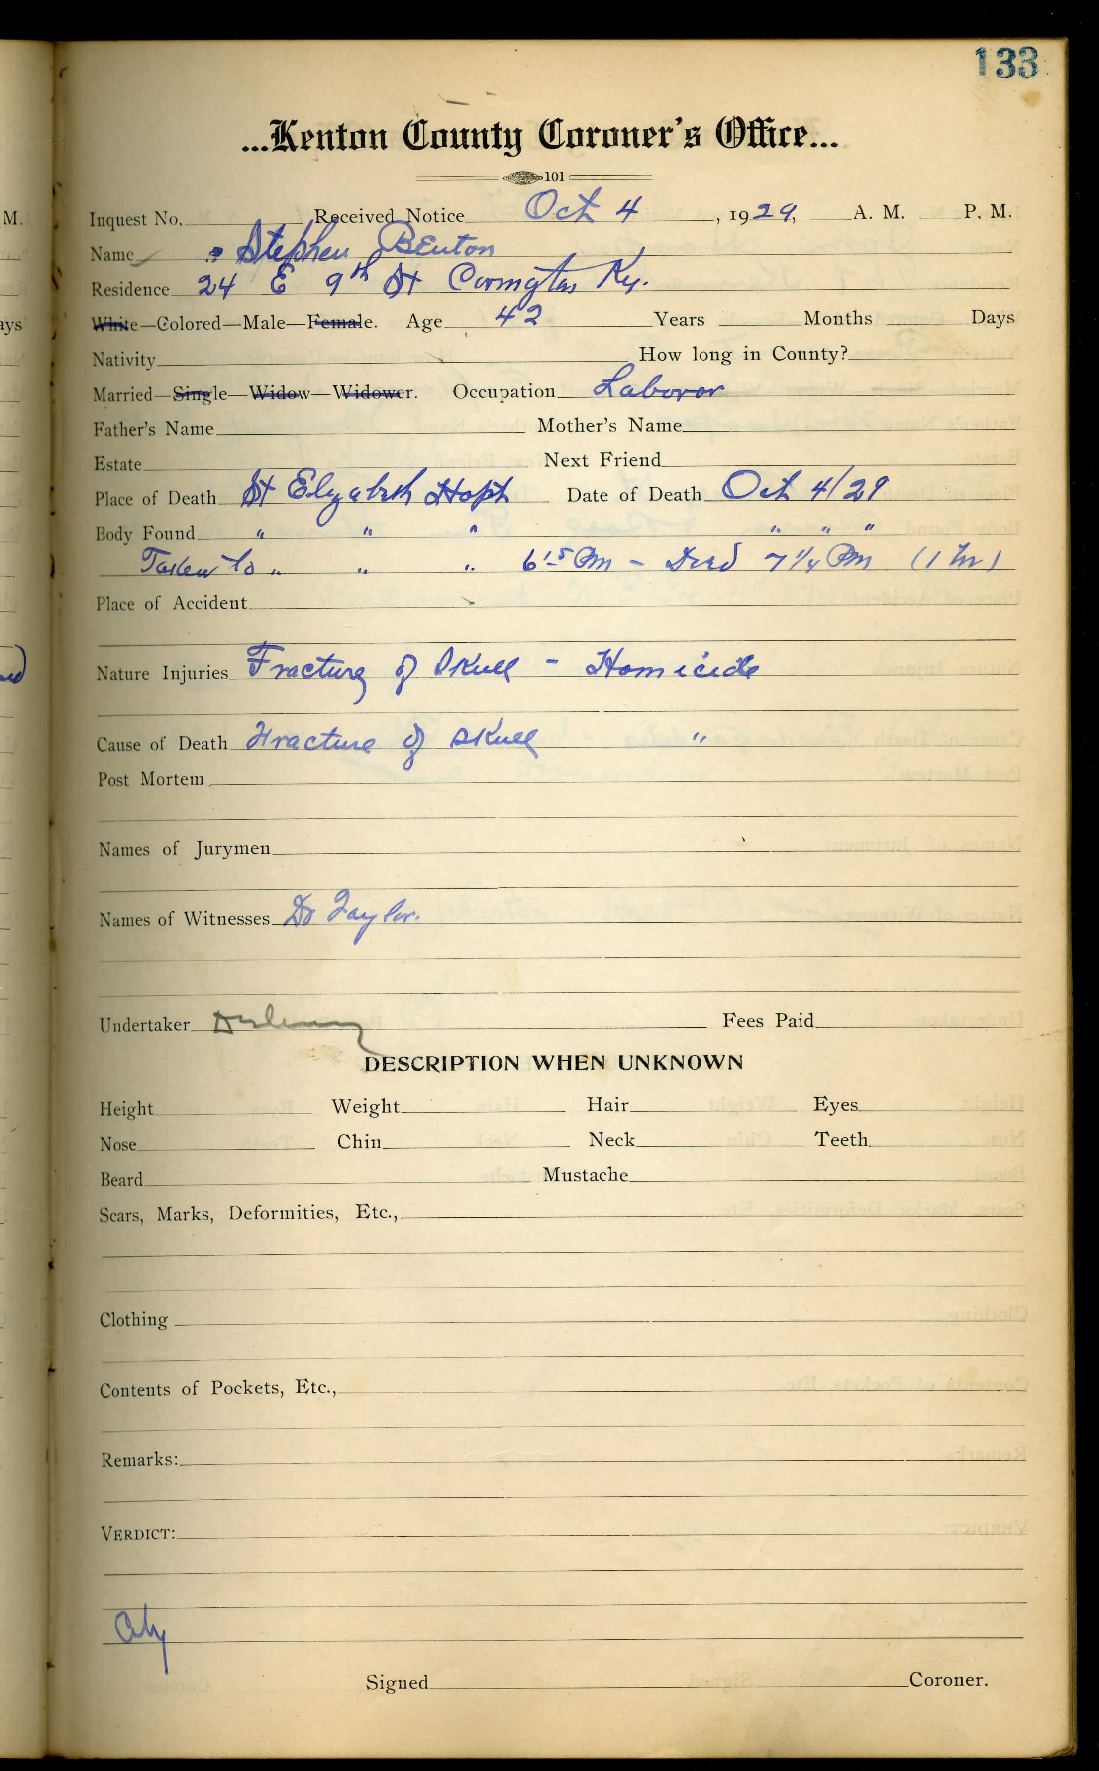 133
...Kenton County Coroner's Office...
101
M.
Inquest No. Received Notice Oct 4, 1929, A. M. P. M.
Name Stephen Benton
Residence 24 E 9th St Covington Ky.
ays
White—Colored—Male—Female. Age 42 Years Months Days
Nativity How long in County?
Married—Single—Widow—Widower. Occupation Laboror
Father's Name Mother's Name
Estate Next Friend
Place of Death St Elyzabeth Hospt Date of Death Oct 4/29
Body Found " " " " " "
Taken to " " " 6 15 Pm - Died 7 1/4 Pm (1 Hr)
Place of Accident
Nature Injuries Fracture of Skull - Homicide
Cause of Death Fracture of Skull "
Post Mortem
Names of Jurymen
Names of Witnesses Dr Taylor.
Undertaker Fees Paid
DESCRIPTION WHEN UNKNOWN
Height Weight Hair Eyes
Nose Chin Neck Teeth
Beard Mustache
Scars, Marks, Deformities, Etc.,
Clothing
Contents of Pockets, Etc.,
Remarks:
VERDICT:
Signed Coroner.